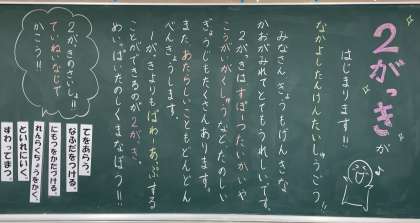 2がっきが
はじまります!!
なかよしたんけんたいしゅうごう!!
みなさん、きょうもげんきな
かおがみれてとてもうれしいです。
2がっきは、すぽーつたいかいや
こうがいがくしゅうなどたのしい
ぎょうじもたくさんあります。
また、あたらしいこともどんどん
べんきょうします。
1がっきよりもぱわーあっぷする
ことができるのが2がっき。
めいっぱいたのしくまなぼう!!
2がっきのさいしょ!!
ていねいなじで
かこう!!
てをあらう。
なふだをつける。
にもつをかたづける。
れんらくちょうをかく。
といれにいく。
すわってまつ。